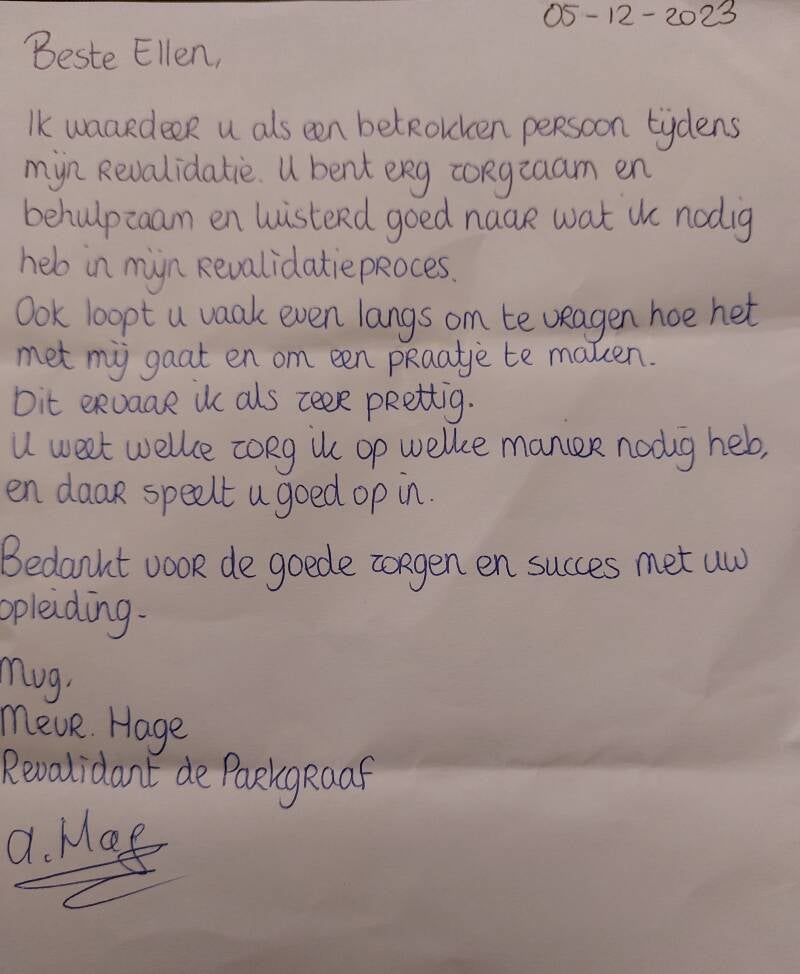 05-12-2023
Beste Ellen,
Ik waardeer u als een betrokken persoon tijdens
mijn revalidatie. U bent erg zorgzaam en
behulpzaam en luisterd goed naar wat ik nodig
heb in mijn revalidatieproces.
Ook loopt u vaak even langs om te vragen hoe het
met mij gaat en om een praatje te maken.
Dit ervaar ik als zeer prettig.
U weet welke zorg ik op welke manier nodig heb,
en daar speelt u goed op in.
Bedankt voor de goede zorgen en succes met uw
opleiding.
Mvg,
Mevr. Hage
Revalidant de Parkgraaf
a. Hage